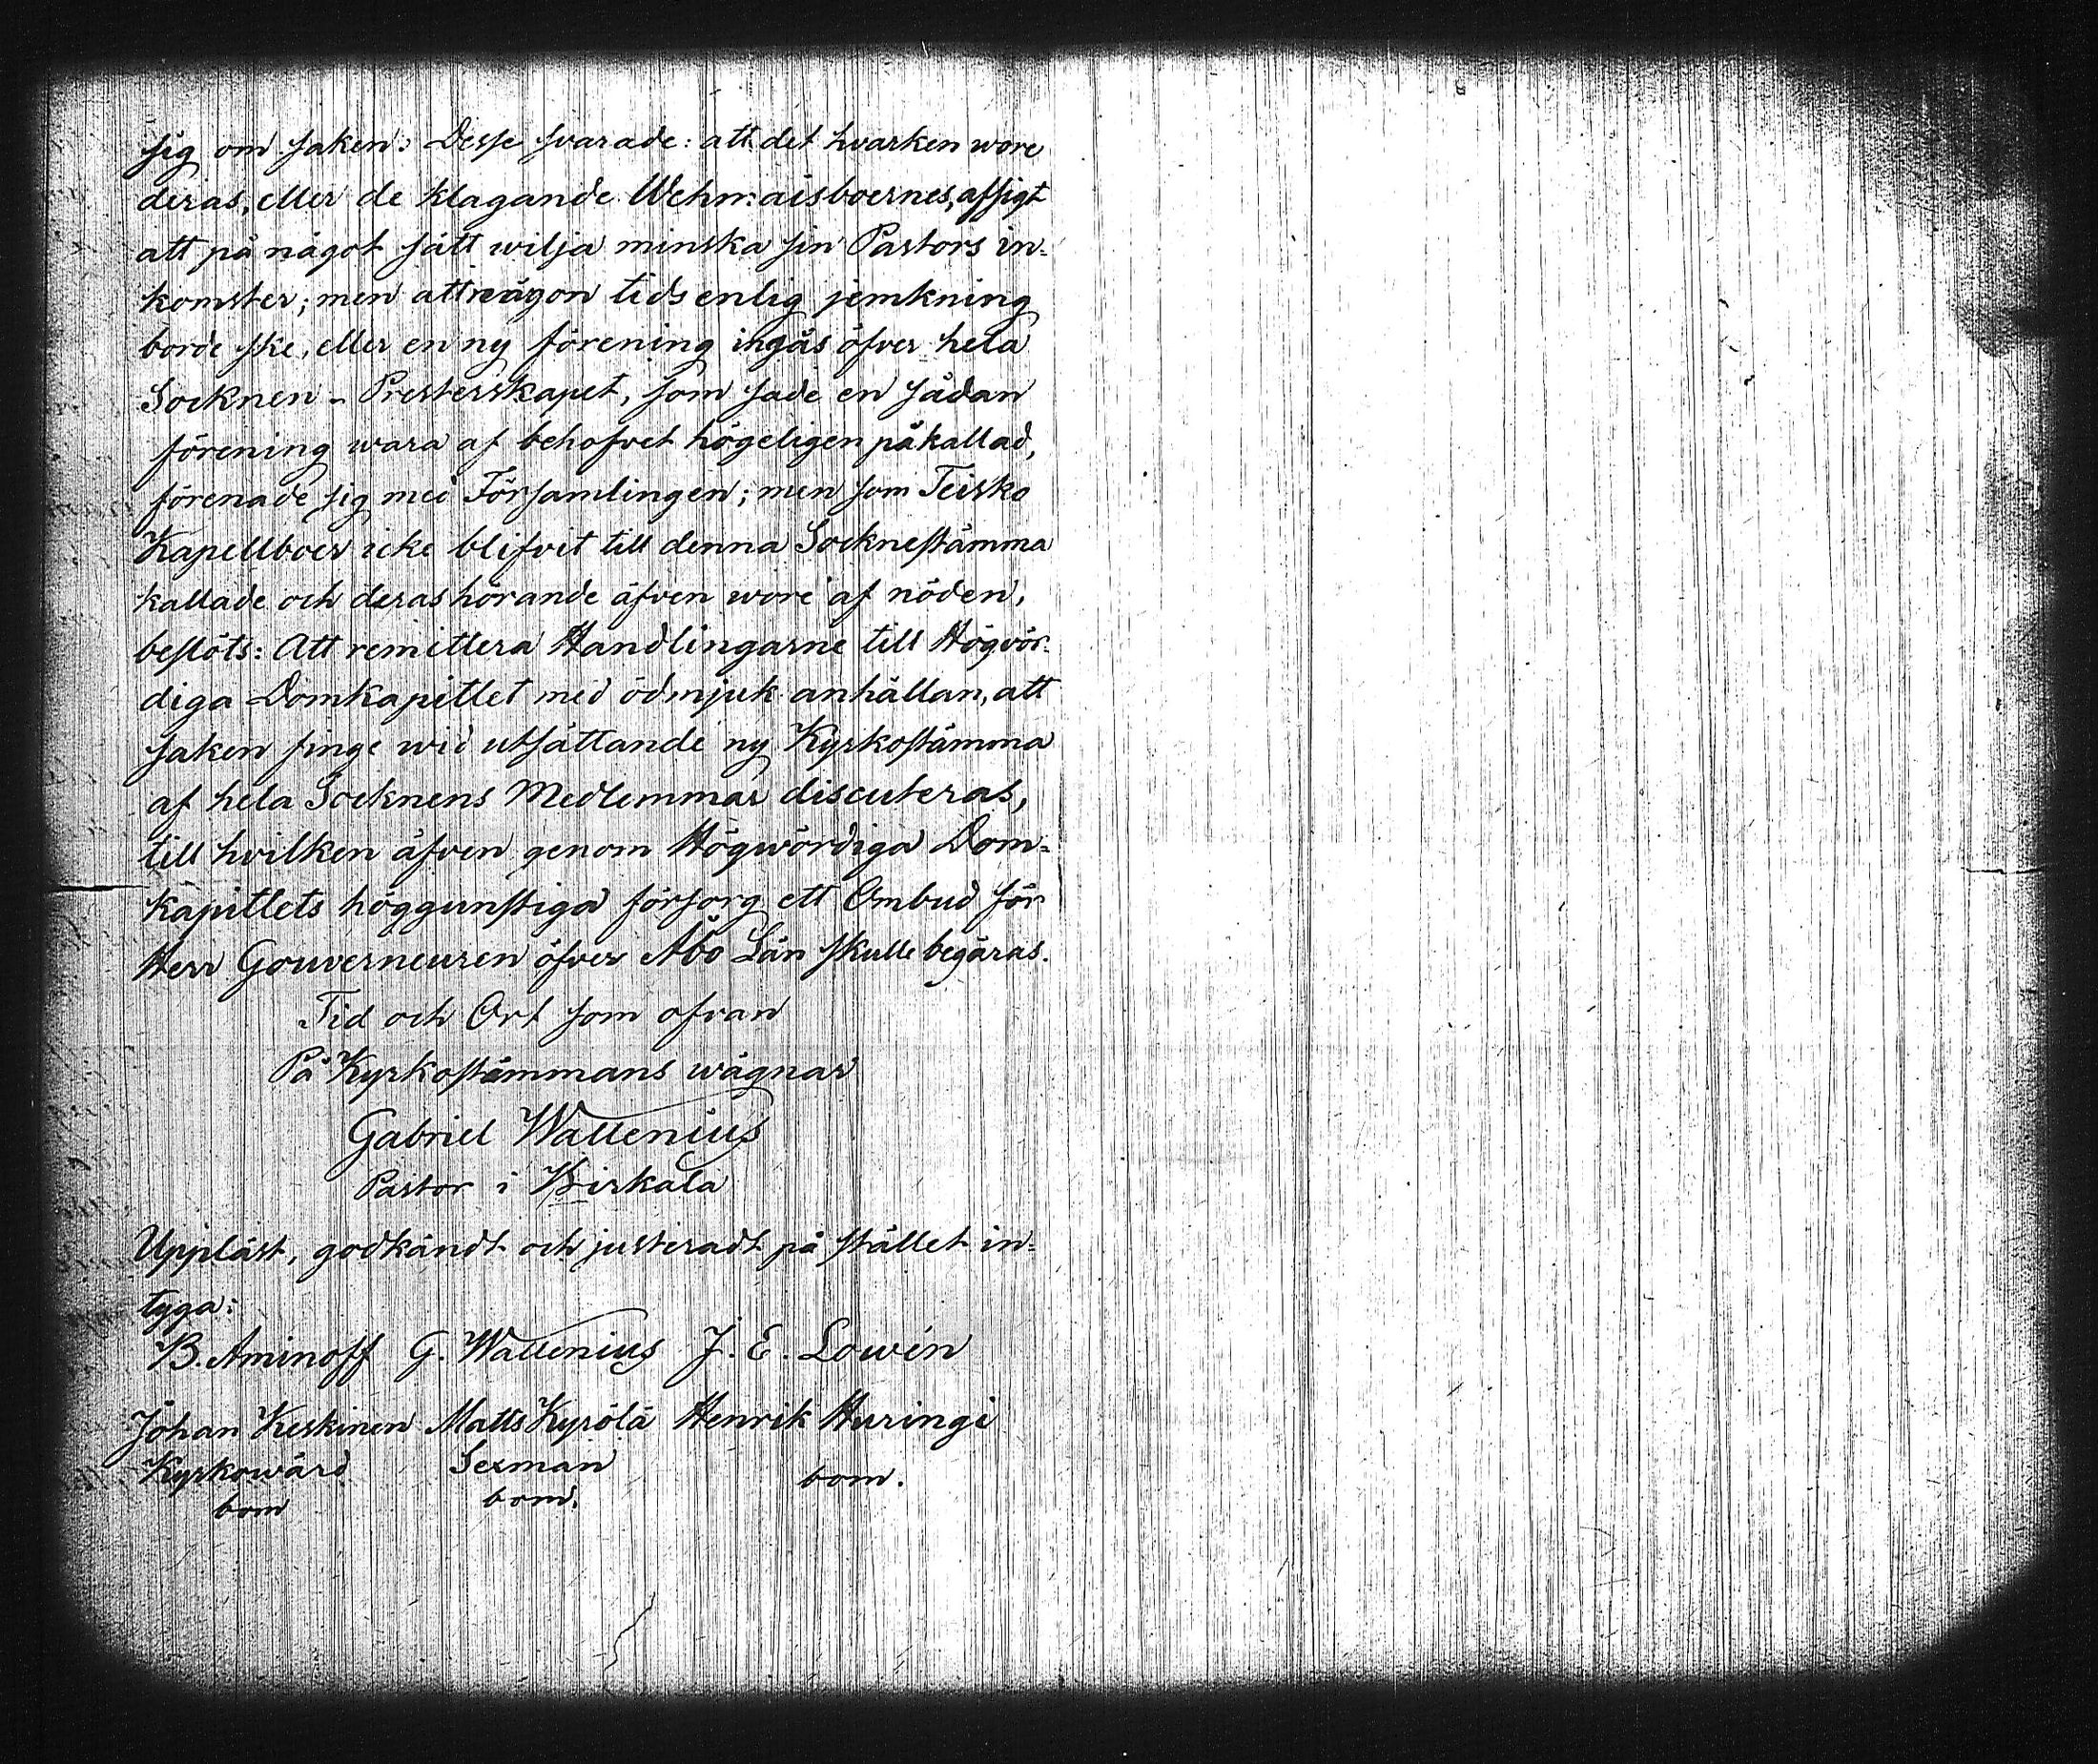 sig om saken. Desse svarade: att det hvarken wore
deras, eller de klagande Wehmaisboernes, afsigt
att på något sätt wilja minska sin Pastors in-
komster; men att någon tidsenlig jemkning
borde ske, eller en ny förening ingås öfver hela
Socknen - Presterskapet, som sade en sådan
förening wara af behofvet högeligen påkallad,
förenade sig med Församlingen; men som Teisko
Kapellboer icke blifvit till denna Socknestämma
kallade och deras hörande äfven wore af nöden,
beslöts: Att remittera Handlingarne till Högvör-
diga Domkapitlet med ödmjuk anhållan, att
saken finge wid utsättande ny Kyrkostämma
af hela Socknens Medlemmar discuteras,
till hvilken äfven genom Högwördiga Dom-
kapitlets höggunstiga försorg ett Ombud för
Herr Gouverneuren öfver Åbo Län skulle begäras.
Tid och Ort som ofvan
På Kyrkostämmans wägnar
Gabriel Wallenius
Pastor i Birkala
Uppläst, godkändt och justeradt på stället in-
tyga:
B. Aminoff G. Wallenius J. E. Lowén
Johan Keskinen Matts Kyrölä Henrik Huringi
Kyrkowärd Sexman bom.
bom bom.